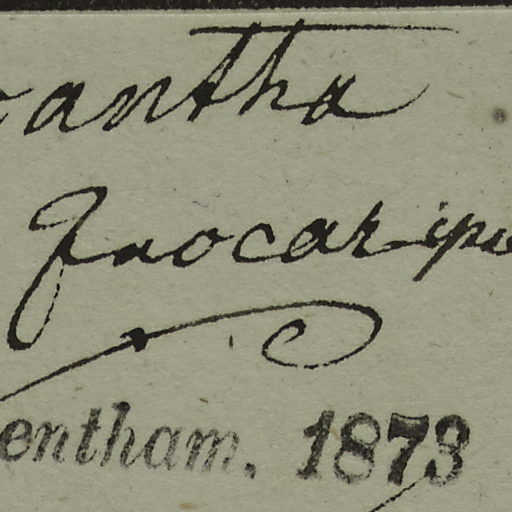 antha
Inocarpu
entham. 1873